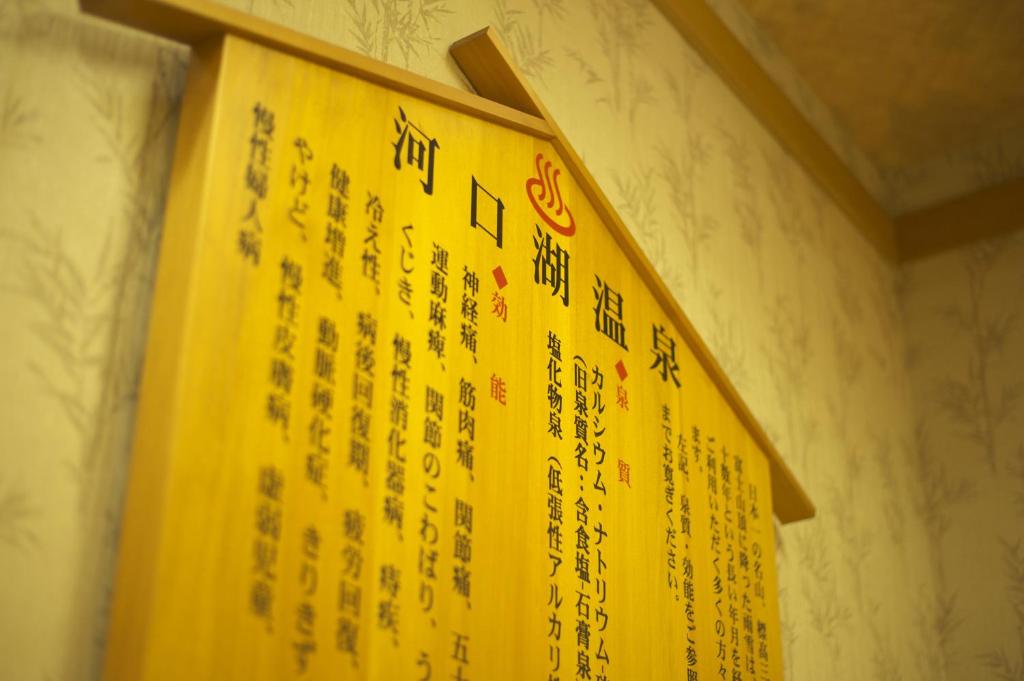 河口湖温泉
日本一の名山、標高三
富士山頂に降った雨雪は、
十数年という長い年月を経
ご利用いただく多くの方々
ます。
左記、泉質・効能をご参照
までお寛ぎください。
◆泉質
カルシウム・ナトリウム−
(旧泉質名：含食塩−石膏泉
塩化物泉 (低張性アルカリ
◆効能
神経痛、筋肉痛、関節痛、五十
運動麻痺、関節のこわばり、う
くじき、慢性消化器病、痔疾、
冷え性、病後回復期、疲労回復、
健康増進、動脈硬化症、きりきず
やけど、慢性皮膚病、虚弱児童、
慢性婦人病